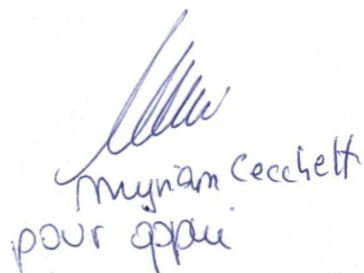 Myriam Cecchetti
pour appui